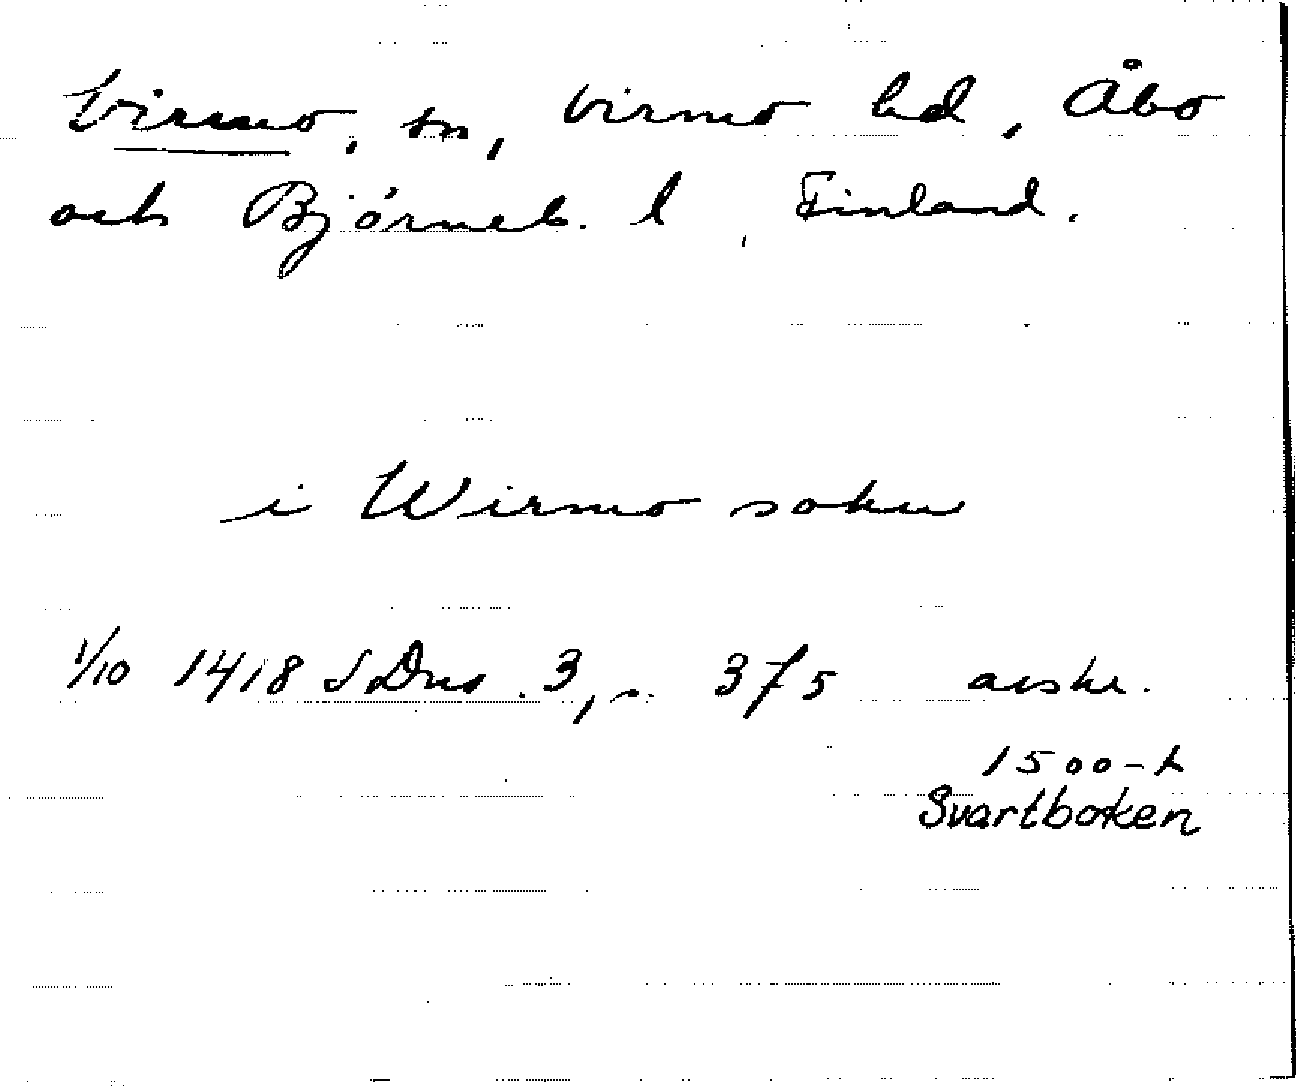 Virmo, sn, Virmo hd, Åbo
och Björneb. l, Finland.
i Wirmo sokn
1/10 1418 SDns 3, s. 375 avskr.
1500-t
Svartboken